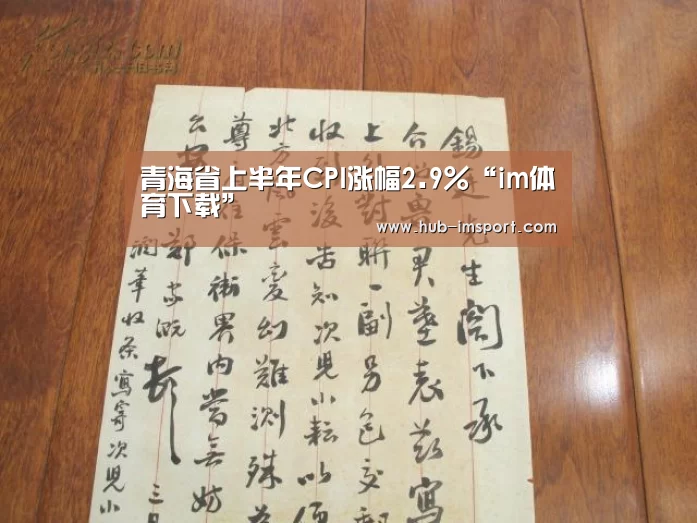 青海省上半年CPI涨幅2.9%“im体
育下载”
www.hub-imsport.com
錫先生閣下承
尹墓表茲寫
上對聯一副另包交郵
收到後告知次兒小耘以便
北方風雲變幻難測殊為
尊住保衛界内當無妨
鄭家溉
三月
潤筆收条寫寄次兒小